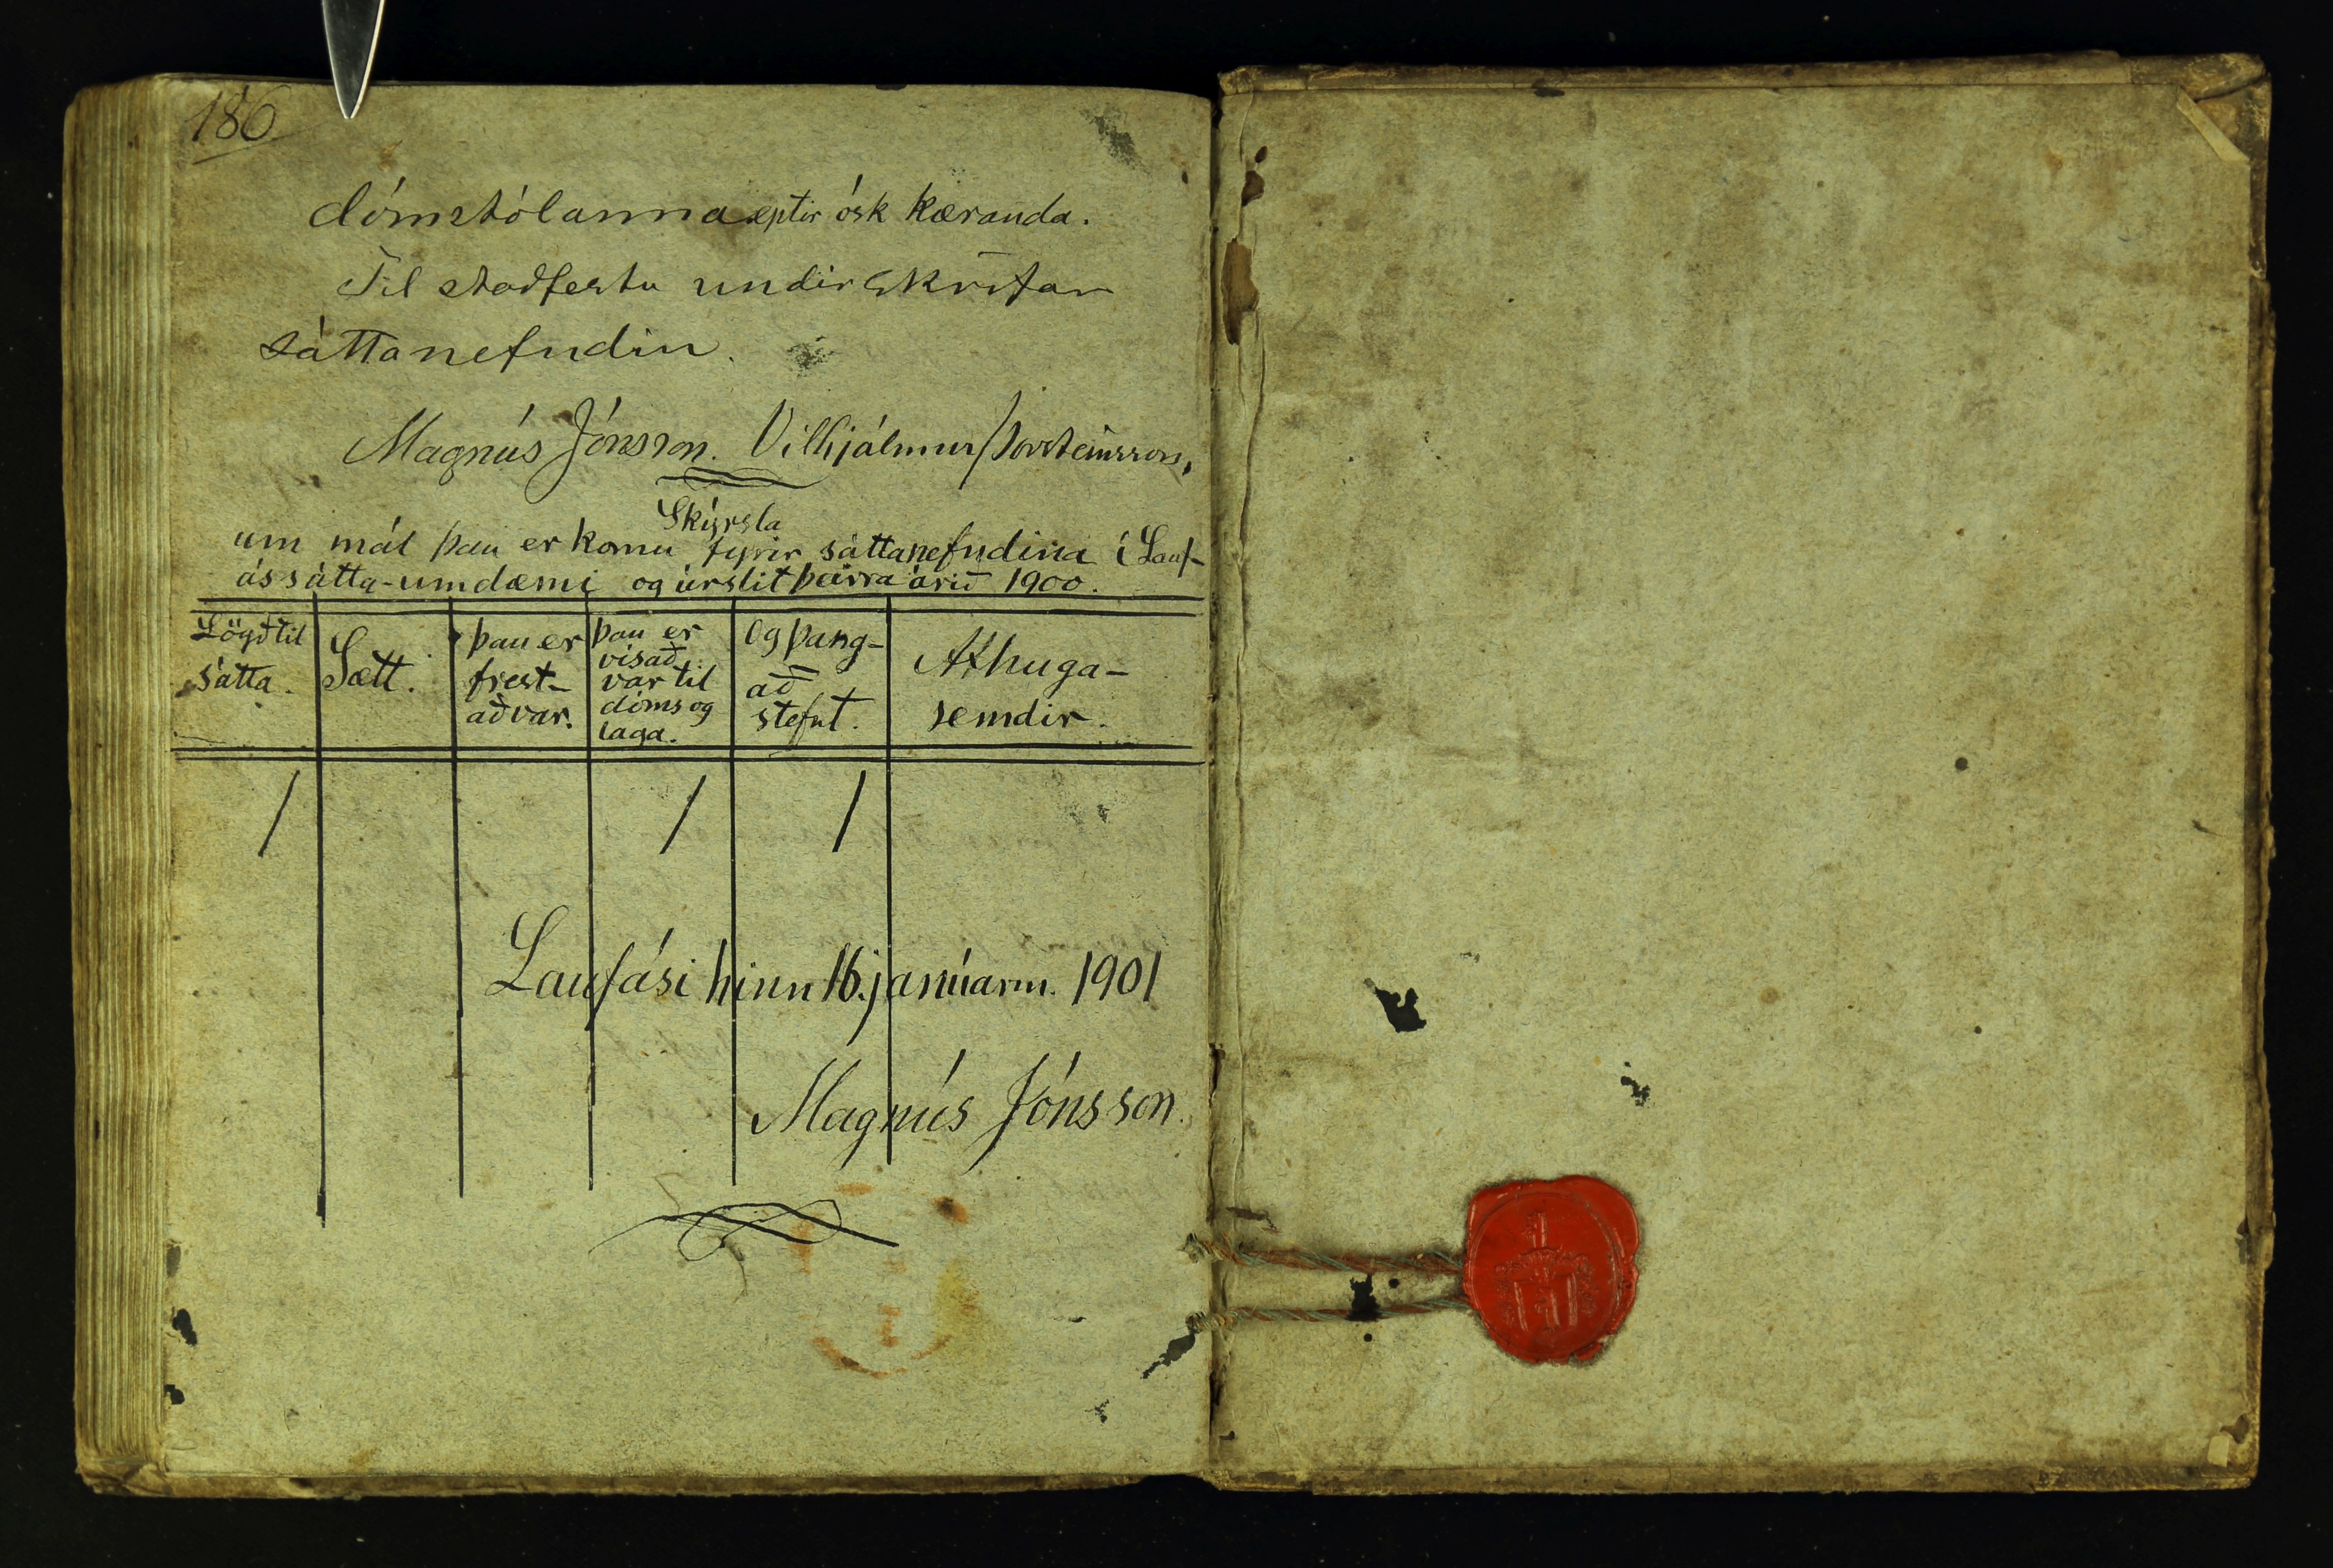 186
dómstólanna eptir ósk kæranda.
Til staðfestu undirskrifar
sáttanefndin.
Magnús Jónsson. Vilhjálmur Þorsteinsson.
Skýrsla
um mál þau er komu fyrir sáttanefndina í Lauf-
ássátta-umdæmi og úrslit þeirra árið 1900.
Lögð til sátta. Sætt. þau er frest- að var. þau er vísað var til dóms og laga. Og þang- að stefnt. Athuga- semdir.
1 1 1
Laufási hinn 16. janúarm. 1901
Magnús Jónsson.